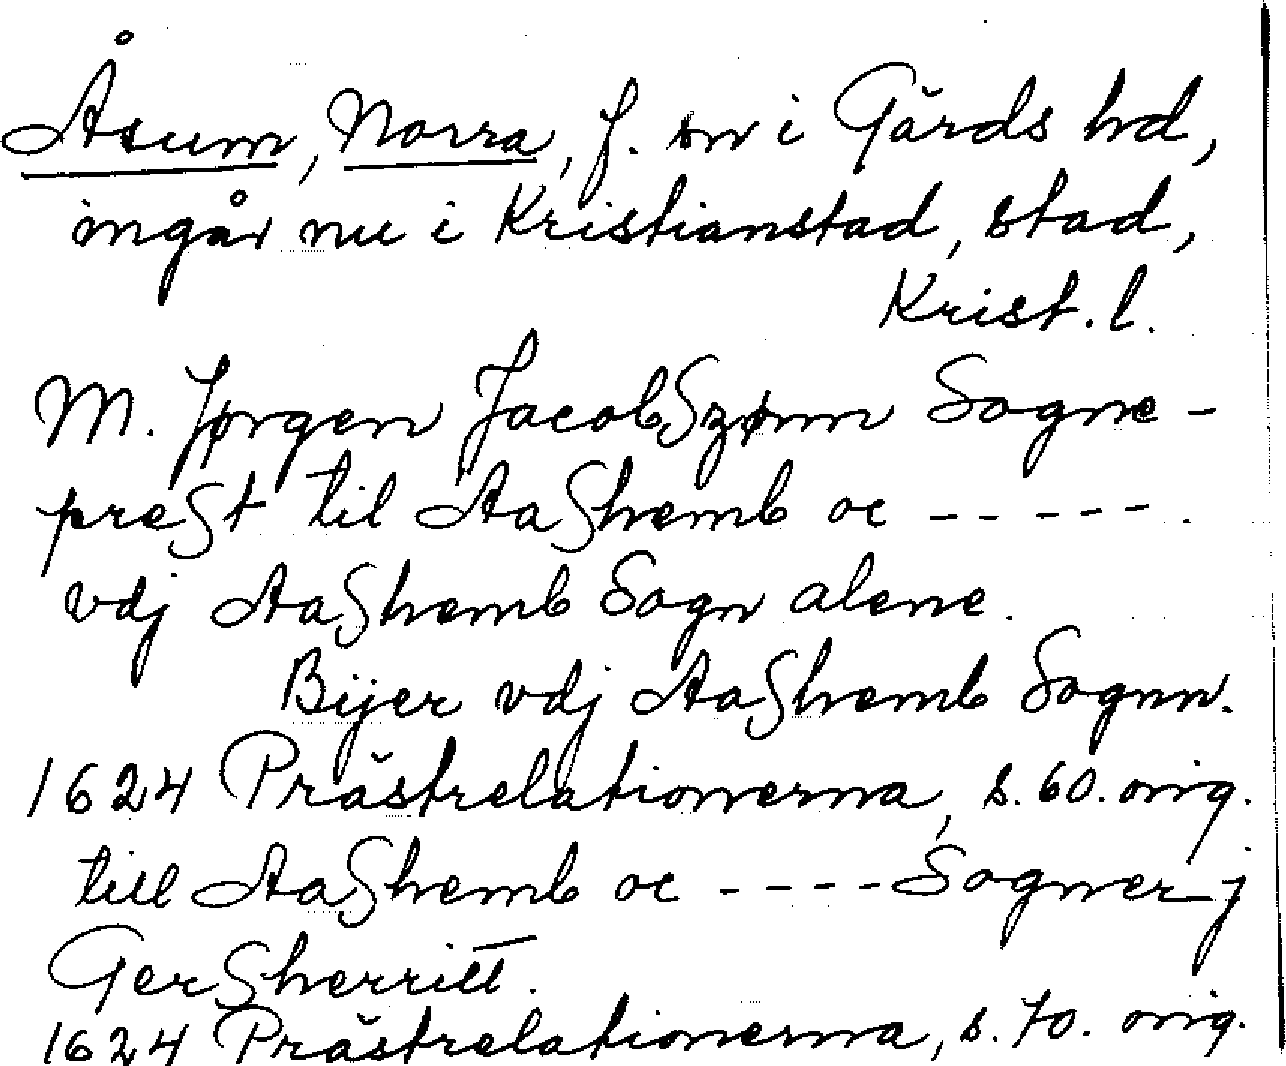 Åsum, Norra, f. sn i Gärds hd,
ingår nu i Kristianstad, stad,
Krist. l.
M. Jørgen JacobSzønn Sogne-
preSt til AaShemb oc - - - - - .
vdj AaShemb Sogn alene.
Bijer vdj AaShemb Sognn.
1624 Prästrelationerna, s. 60. orig.
till AaShemb oc - - - - Sogner j
GerSherritt.
1624 Prästrelationerna, s. 70. orig.